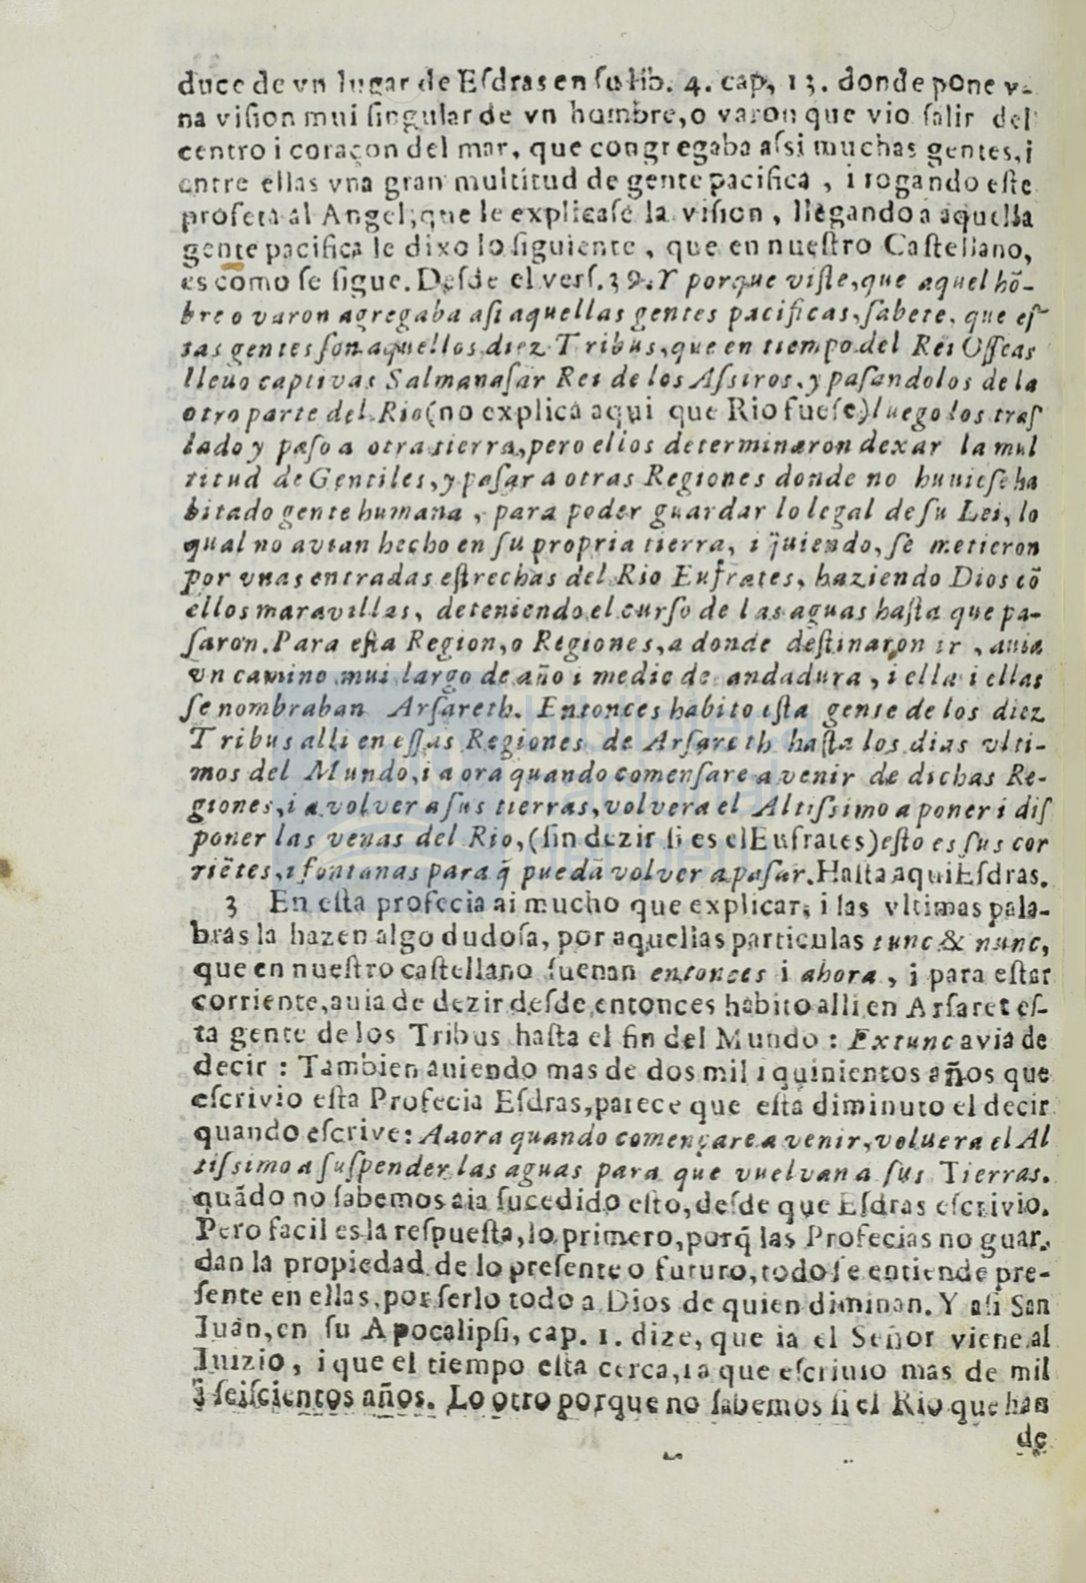 duce de vn lugar de Eſdras en ſu lib. 4. cap, 13. donde pone v-
na viſion mui ſingular de vn hombre, o varon que vio ſalir del
centro i coraçon del mar, que congregaba aſsi muchas gentes, i
entre ellas vna gran multitud de gente pacifica , i rogando eſte
profeta al Angel, que le explicaſe la viſion , llegando a aquella
gente pacifica le dixo lo ſiguiente , que en nueſtro Caſtellano,
es como ſe ſigue. Deſde el verſ. 39. Y porque viſte, que aquel hō-
bre o varon agregaba aſi aquellas gentes pacificas, ſabete, que eſ-
tas gentes ſon aquellos diez Tribus, que en tiempo del Rei Oſſeas
lleuo captivas Salmanaſar Rei de los Aſsiros. y paſandolos de la
otro parte del Rio (no explica aqui que Rio fueſe) luego los traſ
lado y paſo a otra tierra, pero ellos determinaron dexar la mul
titud de Gentiles, y paſar a otras Regiones donde no huuieſe ha
bitado gente humana , para poder guardar lo legal de ſu Lei, lo
qual no avian hecho en ſu propria tierra, i q̃uiendo, ſe metieron
por vnas entradas eſtrechas del Rio Eufrates, haziendo Dios cō
ellos maravillas, deteniendo el curſo de las aguas haſta que pa-
ſaron. Para eſta Region, o Regiones, a donde deſtinaron ir , auia
vn camino mui largo de año i medio de andadura , i ella i ellas
ſe nombraban Arſareth. Entonces habito eſta gente de los diez
Tribus alli en eſſas Regiones de Arſareth haſta los dias vlti-
mos del Mundo, i a ora quando comenſare a venir de dichas Re-
giones, i a volver a ſus tierras, volvera el Altiſsimo a poner i diſ
poner las venas del Rio, (ſin dezir ſi es el Eufrates) eſto es ſus cor
riẽtes, i fontanas para q̃ puedā volver a paſar. Haſta aqui Eſdras.
3 En eſta profecia ai mucho que explicar, i las vltimas pala-
bras la hazen algo dudoſa, por aquellas particulas tunc & nunc,
que en nueſtro caſtellano ſuenan entonces i ahora , i para eſtar
corriente, auia de dezir deſde entonces habito alli en Arſaret eſ-
ta gente de los Tribus haſta el fin del Mundo : Extunc avia de
decir : Tambien auiendo mas de dos mil i quinientos años que
eſcrivio eſta Profecia Eſdras, parece que eſta diminuto el decir
quando eſcrive: Aaora quando començare a venir, voluera el Al
tiſsimo a ſuſpender las aguas para que vuelvan a ſus Tierras.
quãdo no ſabemos aia ſucedido eſto, deſde que Eſdras eſcrivio.
Pero facil es la reſpueſta, lo primero, porq̃ las Profecias no guar-
dan la propiedad de lo preſente o futuro, todo ſe entiende pre-
ſente en ellas, por ſerlo todo a Dios de quien diminan. Y aſi San
Iuan, en ſu Apocalipſi, cap. 1. dize, que ia el Señor viene al
Iuizio , i que el tiempo eſta cerca, ia que eſcriuio mas de mil
i ſeiſcientos años. Lo otro porque no ſabemos ſi el Rio que han
de